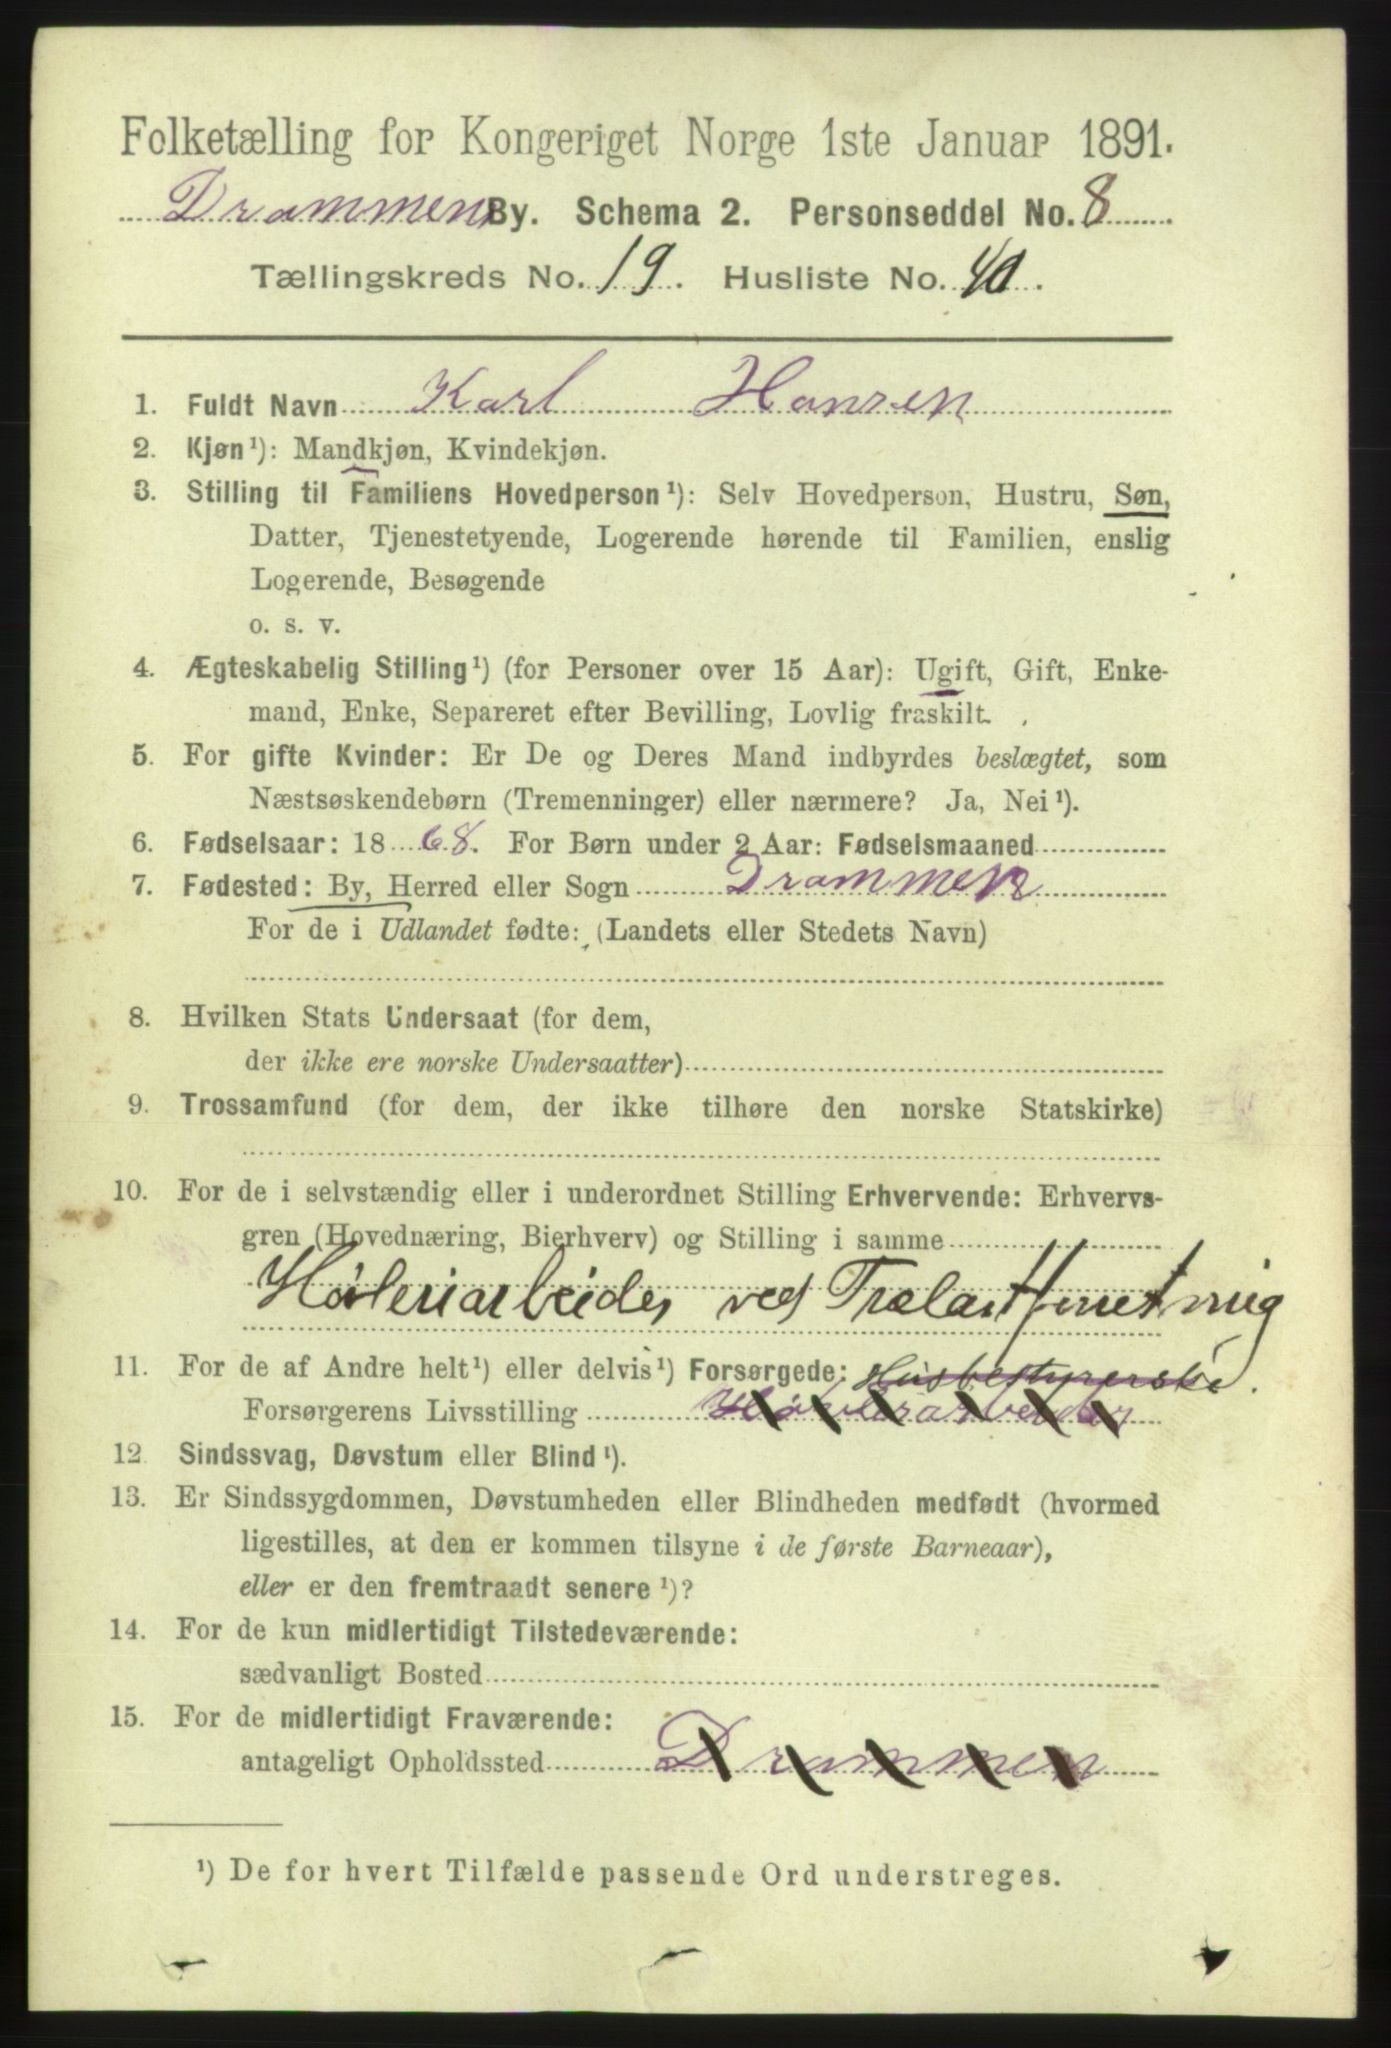 Folketælling for Kongeriget Norge 1ste Januar 1891.
Drammens By. Schema 2. Personseddel No. 8
Tællingskreds No. 19. Husliste No. 40.
1. Fuldt Navn Karl Hansen
2. Kjøn¹): Mandkjøn, Kvindekjøn.
3. Stilling til Familiens Hovedperson¹): Selv Hovedperson, Hustru, Søn,
Datter, Tjenestetyende, Logerende hørende til Familien, enslig
Logerende, Besøgende
o. s. v.
4. Ægteskabelig Stilling¹) (for Personer over 15 Aar): Ugift, Gift, Enke-
mand, Enke, Separeret efter Bevilling, Lovlig fraskilt.
5. For gifte Kvinder: Er De og Deres Mand indbyrdes beslægtet, som
Næstsøskendebørn (Tremenninger) eller nærmere? Ja, Nei¹).
6. Fødselsaar: 1868. For Børn under 2 Aar: Fødselsmaaned
7. Fødested: By, Herred eller Sogn Drammen
For de i Udlandet fødte: (Landets eller Stedets Navn)
8. Hvilken Stats Undersaat (for dem,
der ikke ere norske Undersaatter)
9. Trossamfund (for dem, der ikke tilhøre den norske Statskirke)
10. For de i selvstændig eller i underordnet Stilling Erhvervende: Erhvervs-
gren (Hovednæring, Bierhverv) og Stilling i samme
Høvleriarbeider ved Trælastforretning
11. For de af Andre helt¹) eller delvis¹) Forsørgede: Husbestyrerske.
Forsørgerens Livsstilling Høvleriarbeider
12. Sindssvag, Døvstum eller Blind¹).
13. Er Sindssygdommen, Døvstumheden eller Blindheden medfødt (hvormed
ligestilles, at den er kommen tilsyne i de første Barneaar),
eller er den fremtraadt senere¹)?
14. For de kun midlertidigt Tilstedeværende:
sædvanligt Bosted
15. For de midlertidigt Fraværende:
antageligt Opholdssted Drammen
¹) De for hvert Tilfælde passende Ord understreges.